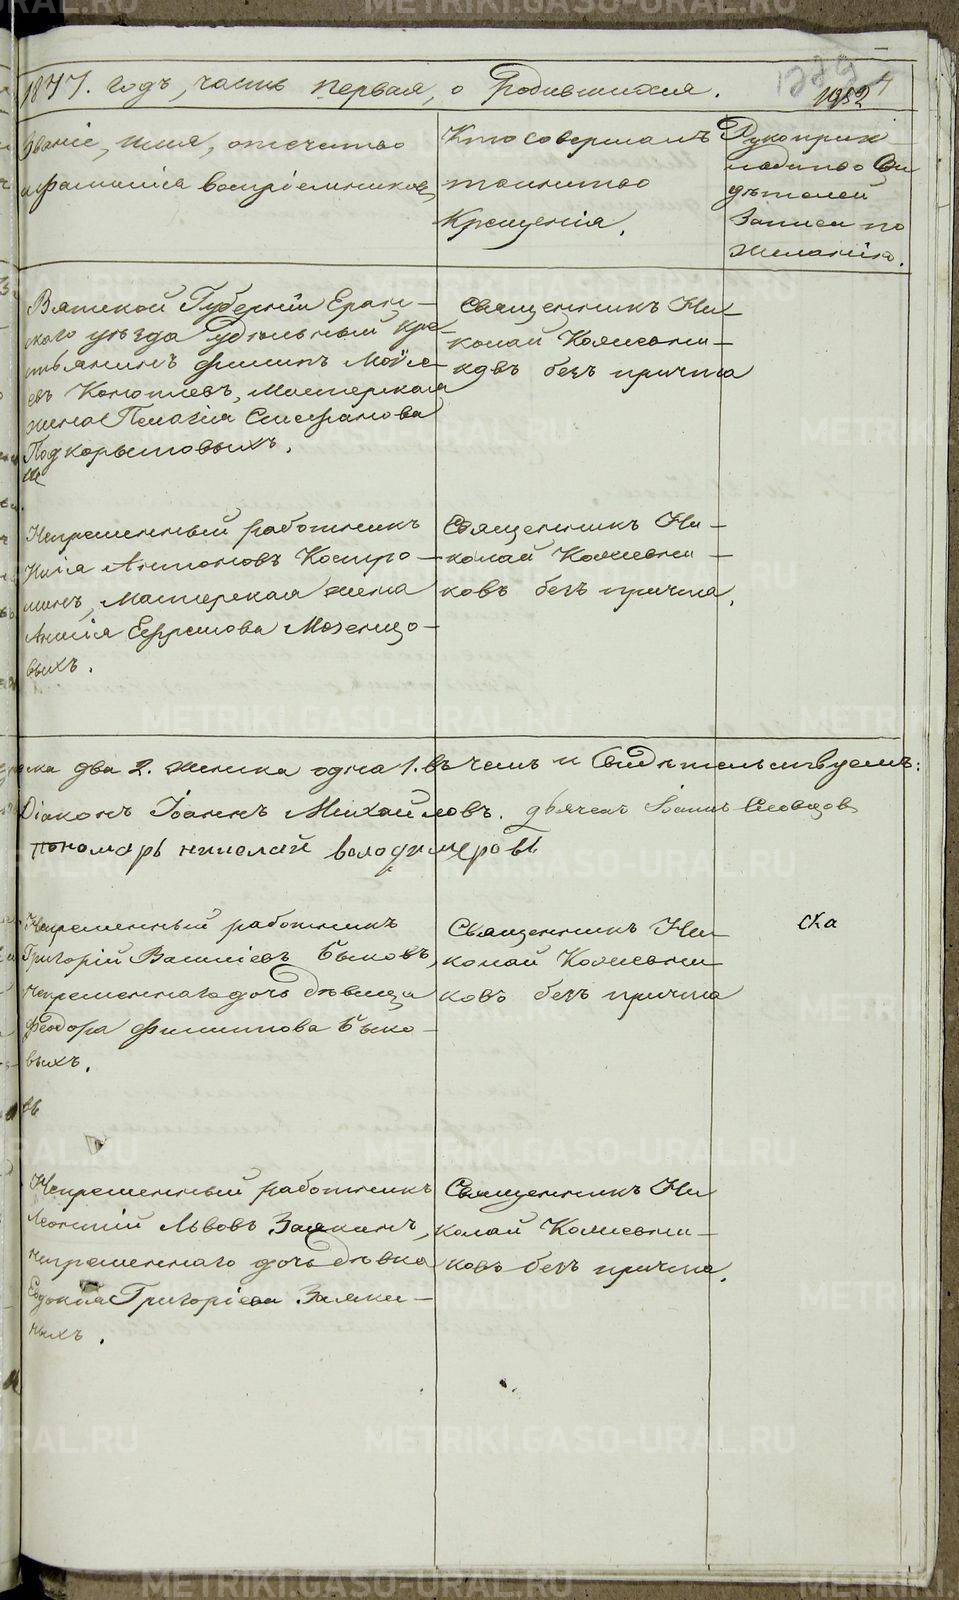 1847. годъ, часть первая, о Родившихся.
Званіе, имя, отчество
и фамилія воспріемниковъ
Кто совершалъ
таинство
Крещенія.
Рукоприк
ладство Сви
дѣтелей
Записи по
желанію.
Вятской Губерніи Еран-
скаго уѣзда удѣльный кре-
стьянинъ Филипъ Моисе-
евъ Конотиевъ, мастерская
жена Пелагія Стефанова
Подкорытовыхъ.
Священникъ Ни-
колай Кожевни-
ковъ безъ причта
Непременный работникъ
Илія Антоновъ Костро-
минъ, Мастерская жена
Анна Ефремова Мезенцо-
выхъ.
Священникъ Ни-
колай Кожевни-
ковъ безъ причта.
два 2. женска одна 1. въ чемъ и Свидѣтельствуемъ:
Діаконъ Іоаннъ Михайловъ. дьячекъ Іоаннъ Словцовъ
пономарь николай володимеровъ
Непременный работникъ
Григорій Василіевъ Быковъ,
непременнаго дочь дѣвица
Феодора Филиппова Быко-
выхъ.
Священникъ Ни-
колай Кожевни-
ковъ безъ причта
ска
Непременный работникъ
Леонтій Львовъ Заякинъ,
непременнаго дочь дѣвка
Евдокія Григоріева Заяки-
ныхъ.
Священникъ Ни
колай Кожевни-
ковъ безъ причта.
METRIKI.GASO-URAL.RU